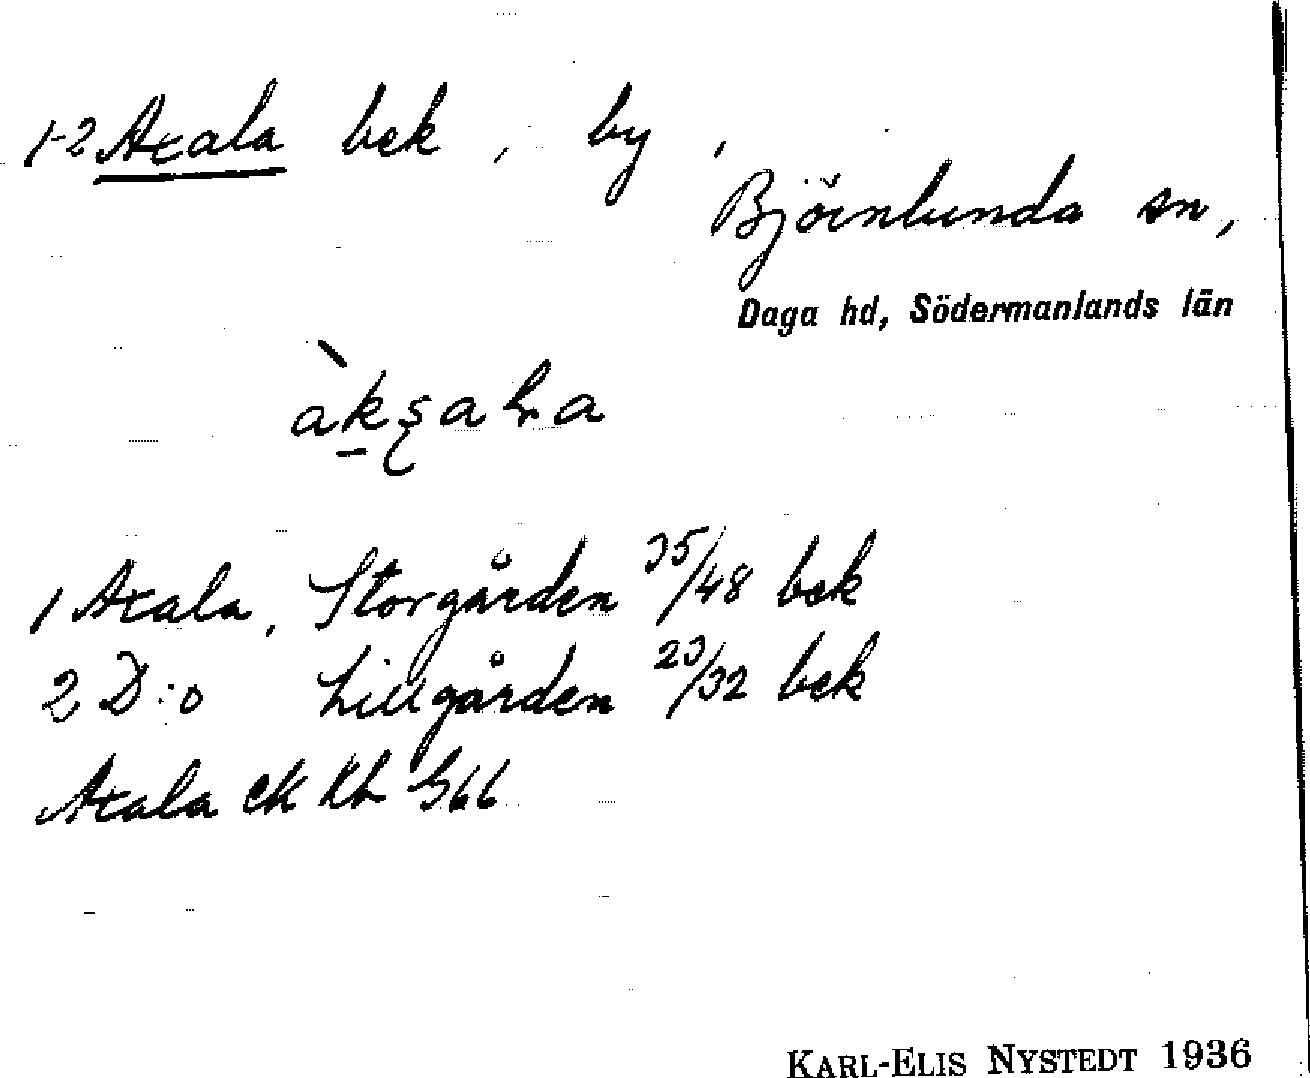 1-2 Axala bek, by,
Björnlunda sn,
Daga hd, Södermanlands län
1 Axala, Storgården 35/48 bek
2 D:o Lillgården 23/32 bek
Axala ek kb
KARL-ELIS NYSTEDT 1936